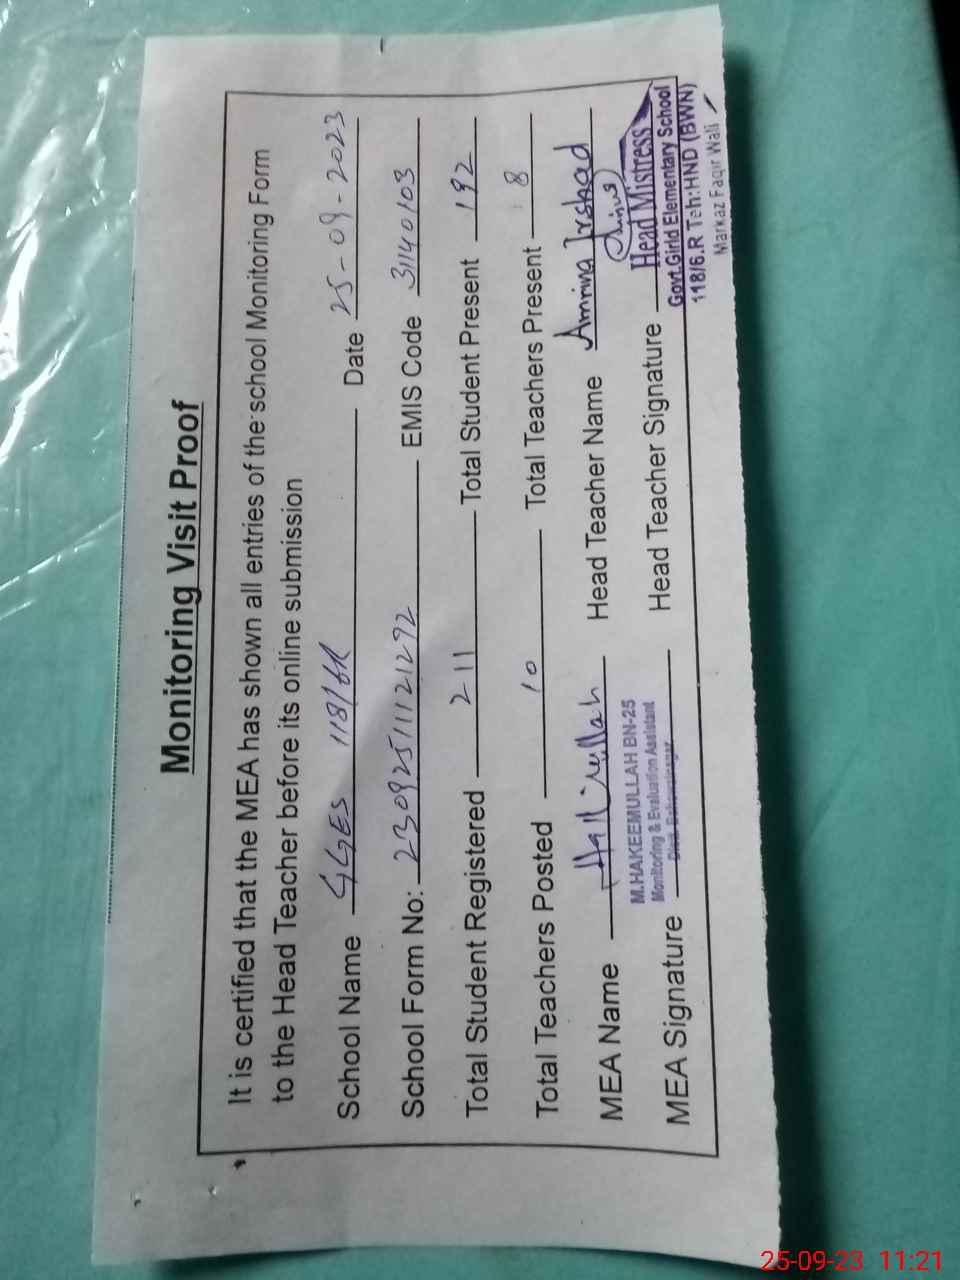 Monitoring Visit Proof
It is certified that the MEA has shown all entries of the school Monitoring Form
to the Head Teacher before its online submission
School Name GGES 118/6R Date 25-09-2023
School Form No: 230925111121292 EMIS Code 31140103
Total Student Registered 211 Total Student Present 192
Total Teachers Posted 10 Total Teachers Present 8
MEA Name Head Teacher Name Amrina Irshad
M.HAKEEMULLAH BN-25
Monitoring & Evaluation Assistant
Distt. Bahawalnagar
MEA Signature Head Teacher Signature
Head Mistress
Govt.Girld Elementary School
118/6.R Teh:HND (BWN)
Markaz Faqir Wali
25-09-23 11:21